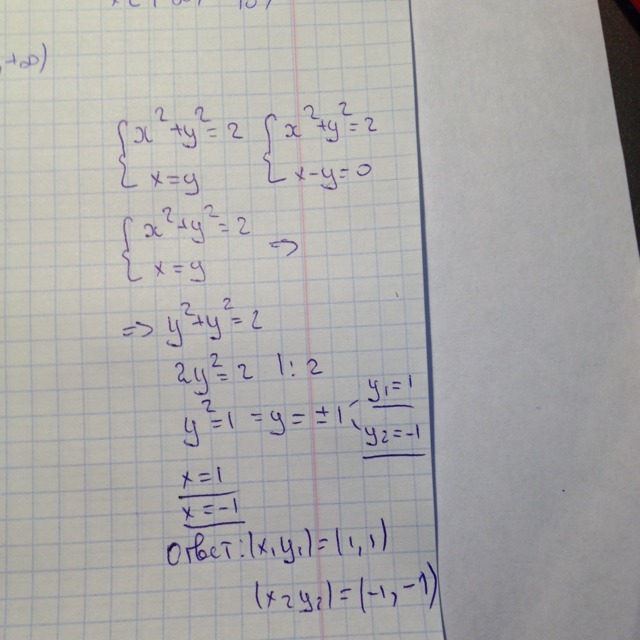 ,+∞)
{ x²+y²=2 { x²+y²=2
x=y x-y=0
{ x²+y²=2
x=y =>
=> y²+y²=2
2y²=2 |:2
y²=1 =y=±1 y₁=1
y₂=-1
x=1
x=-1
Ответ: (x₁y₁)=(1,1)
(x₂y₂)=(-1,-1)